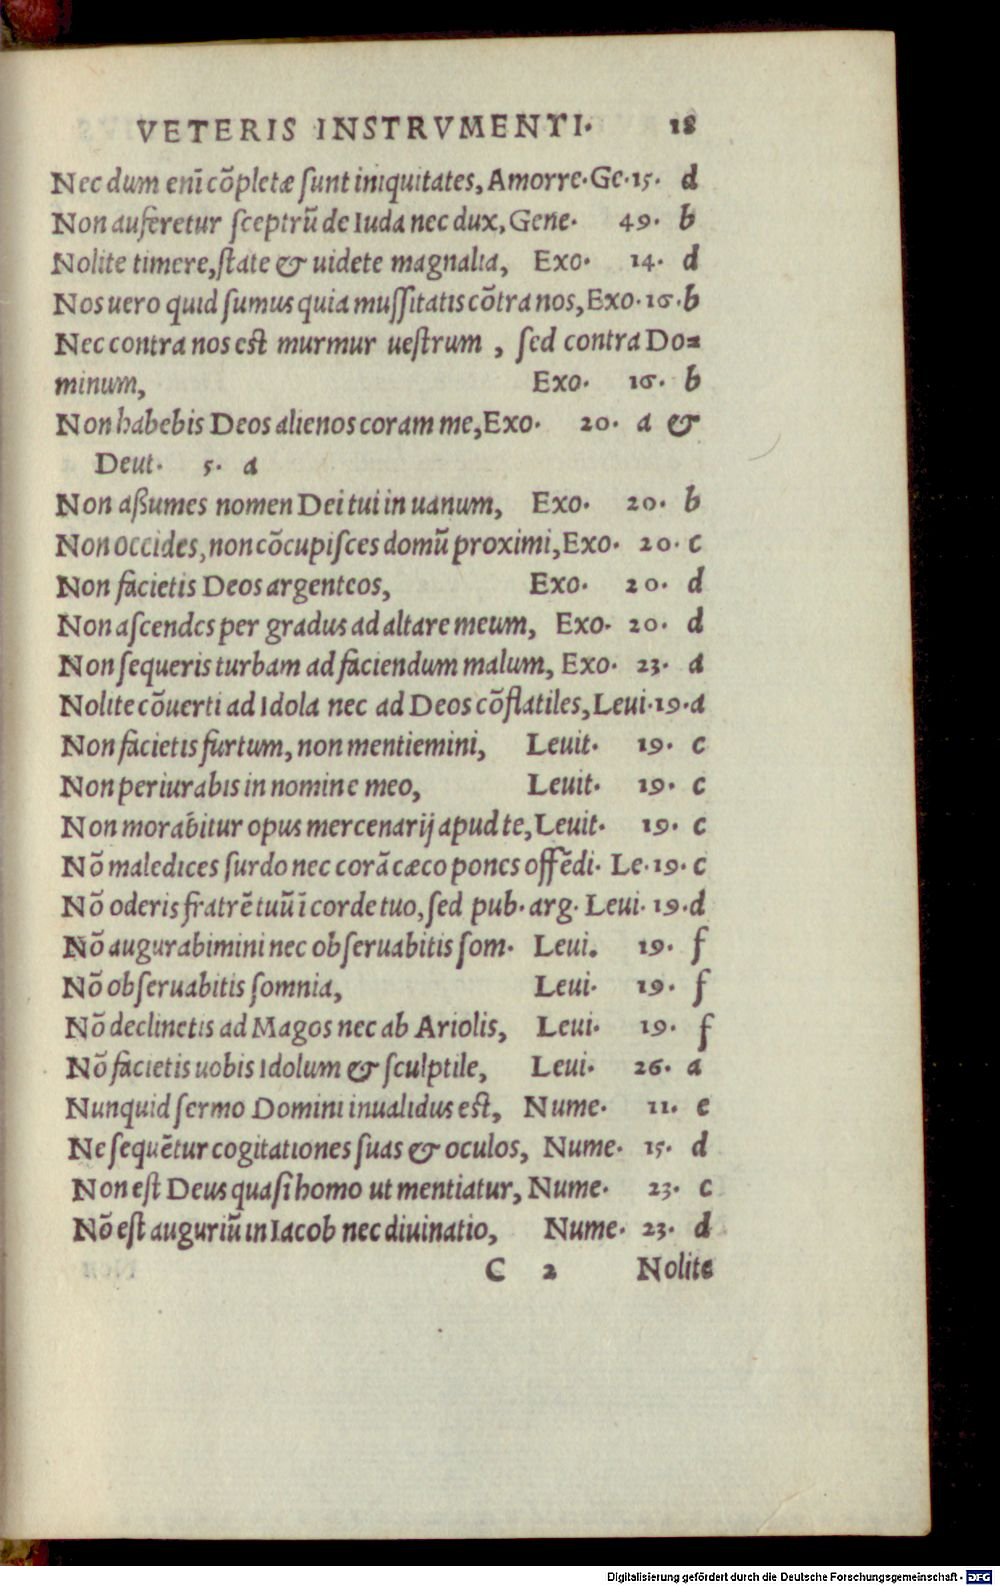 VETERIS INSTRVMENTI. 18
Nec dum enī cōpletæ ſunt iniquitates, Amorre. Ge. 15. d
Non auferetur ſceptrū de Iuda nec dux, Gene. 49. b
Nolite timere, ſtate & uidete magnalia, Exo. 14. d
Nos uero quid ſumus quia muſſitatis cōtra nos, Exo. 16. b
Nec contra nos est murmur ueſtrum , ſed contra Do⸗
minum, Exo. 16. b
Non habebis Deos alienos coram me, Exo. 20. a &
Deut. 5. a
Non aßumes nomen Dei tui in uanum, Exo. 20. b
Non occides, non cōcupiſces domū proximi, Exo. 20. c
Non facietis Deos argenteos, Exo. 20. d
Non aſcendes per gradus ad altare meum, Exo. 20. d
Non ſequeris turbam ad faciendum malum, Exo. 23. a
Nolite cōuerti ad Idola nec ad Deos cōflatiles, Leui. 19. a
Non facietis furtum, non mentiemini, Leuit. 19. c
Non periurabis in nomine meo, Leuit. 19. c
Non morabitur opus mercenarij apud te, Leuit. 19. c
Nō maledices ſurdo nec corā cæco pones offēdi. Le. 19. c
Nō oderis fratrē tuū ī corde tuo, ſed pub. arg. Leui. 19. d
Nō augurabimini nec obſeruabitis ſom. Leui. 19. f
Nō obſeruabitis ſomnia, Leui. 19. f
Nō declinetis ad Magos nec ab Ariolis, Leui. 19. f
Nō facietis uobis Idolum & ſculptile, Leui. 26. a
Nunquid ſermo Domini inualidus est, Nume. 11. e
Ne ſequētur cogitationes ſuas & oculos, Nume. 15. d
Non eſt Deus quaſi homo ut mentiatur, Nume. 23. c
Nō eſt auguriū in Iacob nec diuinatio, Nume. 23. d
C 2 Nolite
Digitalisierung gefördert durch die Deutsche Forschungsgemeinschaft - DFG